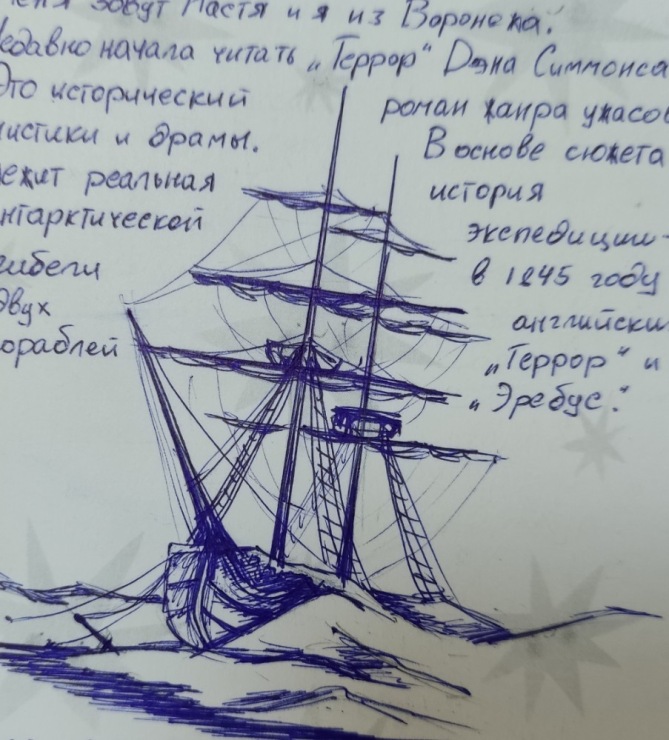 еня зовут Настя и я из Воронежа.
едавно начала читать „Террор“ Дэна Симмонса
Это исторический роман жанра ужасов
мистики и драмы. В основе сюжета
лежит реальная история
нтарктической экспедиции-
гибели в 1845 году
двух английски
ораблей „Террор“ и
„Эребус.“